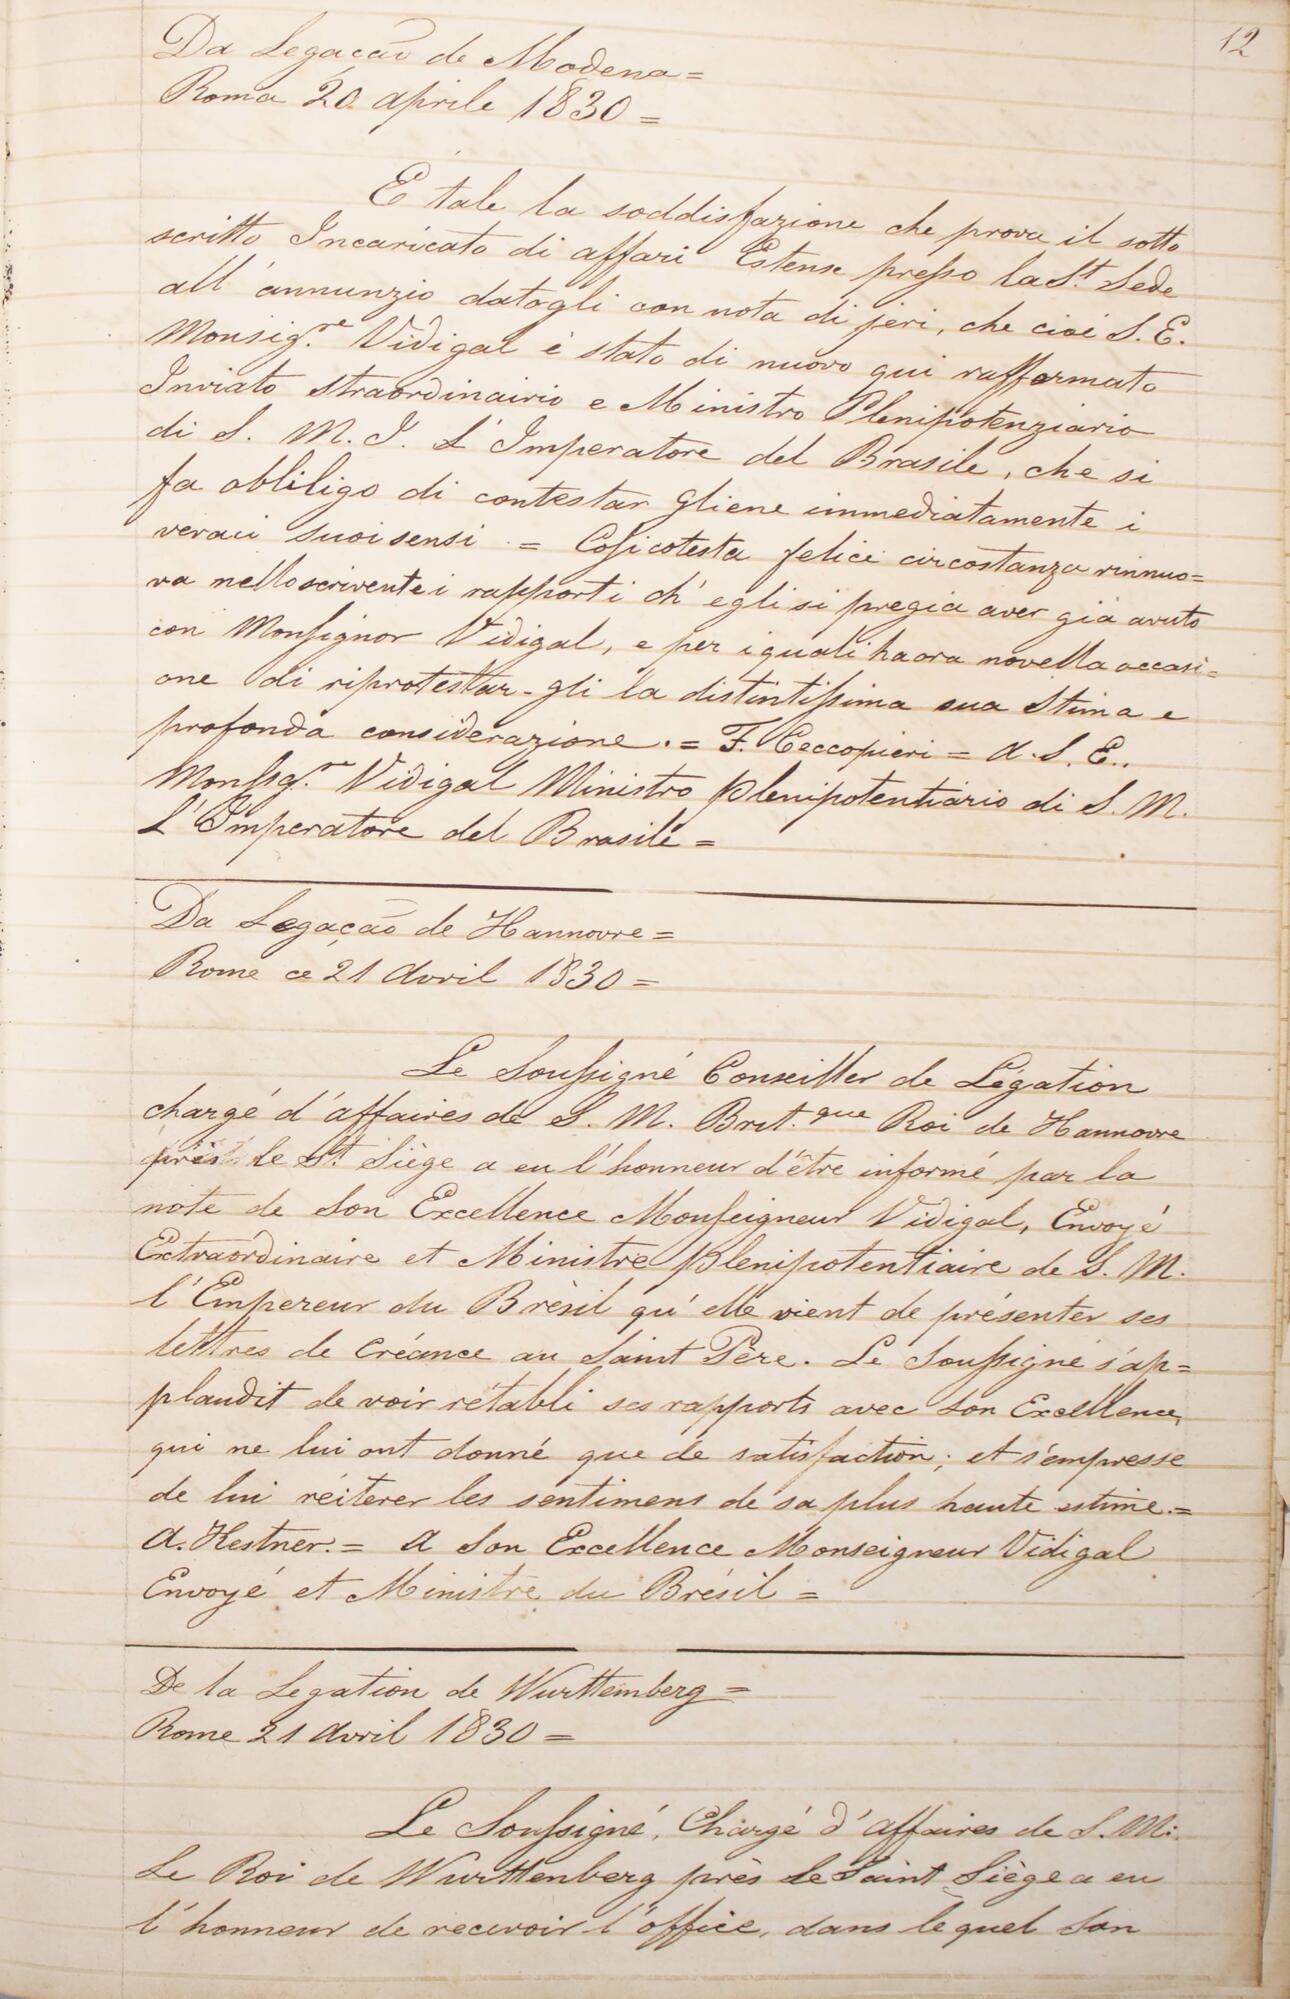 12
Da Legação de Modena =
Roma 20 aprile 1830 =
E tale la soddisfazione che prova il sotto
scritto Incaricato di affari Estense presso la St. Sede
all' annunzio datogli con nota di jeri, che cioé S. E.
Monsig.re Vidigal è stato di nuovo qui raffermato
Inviato straordinairio e Ministro Plenipotenziario
di S. M. I. L' Imperatore del Brasile, che si
fa obliligo di contestar gliene immediatamente i
veraci suoi sensi = Cosi cotesta felice circostanza rinnuo=
va nello scrivente i rapporti ch' egli si pregia aver già avuto
con Monsignor Vidigal, e per i quali ha ora novella occasi=
one di riprotestar-gli la distintissima sua stima e
profonda considerazione. = F. Ceccopieri = A. S. E..
Monssg.re Vidigal Ministro plenipotentiario di S. M.
L' Imperatore del Brasile =
Da Legação de Hannovre =
Rome ce 21 Avril 1830 =
Le Soussigné Conseiller de Légation
chargé d'affaires de S. M. Brit.que Roi de Hannovre
près le St. Siège a eu l'honneur d'être informé par la
note de Son Excellence Monseigneur Vidigal, Envoyé
Extraordinaire et Ministre plenipotentiaire de S. M.
l'Empereur du Brèsil qu' elle vient de présenter ses
lettres de Créance au Saint Père. Le Soussigné s'ap=
plaudit de voir rétabli ses rapports avec Son Excellence,
qui ne lui ont donné que de satisfaction; et s'empresse
de lui réiterer les sentimens de sa plus haute estime. =
A. Kestner. = A Son Excellence Monseigneur Vidigal
Envoyé et Ministre du Brésil =
De la Legation de Wurttemberg =
Rome 21 Avril 1830 =
Le Soussigné, Chargé d'affaires de S. M.
Le Roi de Wurttenberg près le Saint Siège a eu
l'honneur de recevoir l'office, dans lequel Son